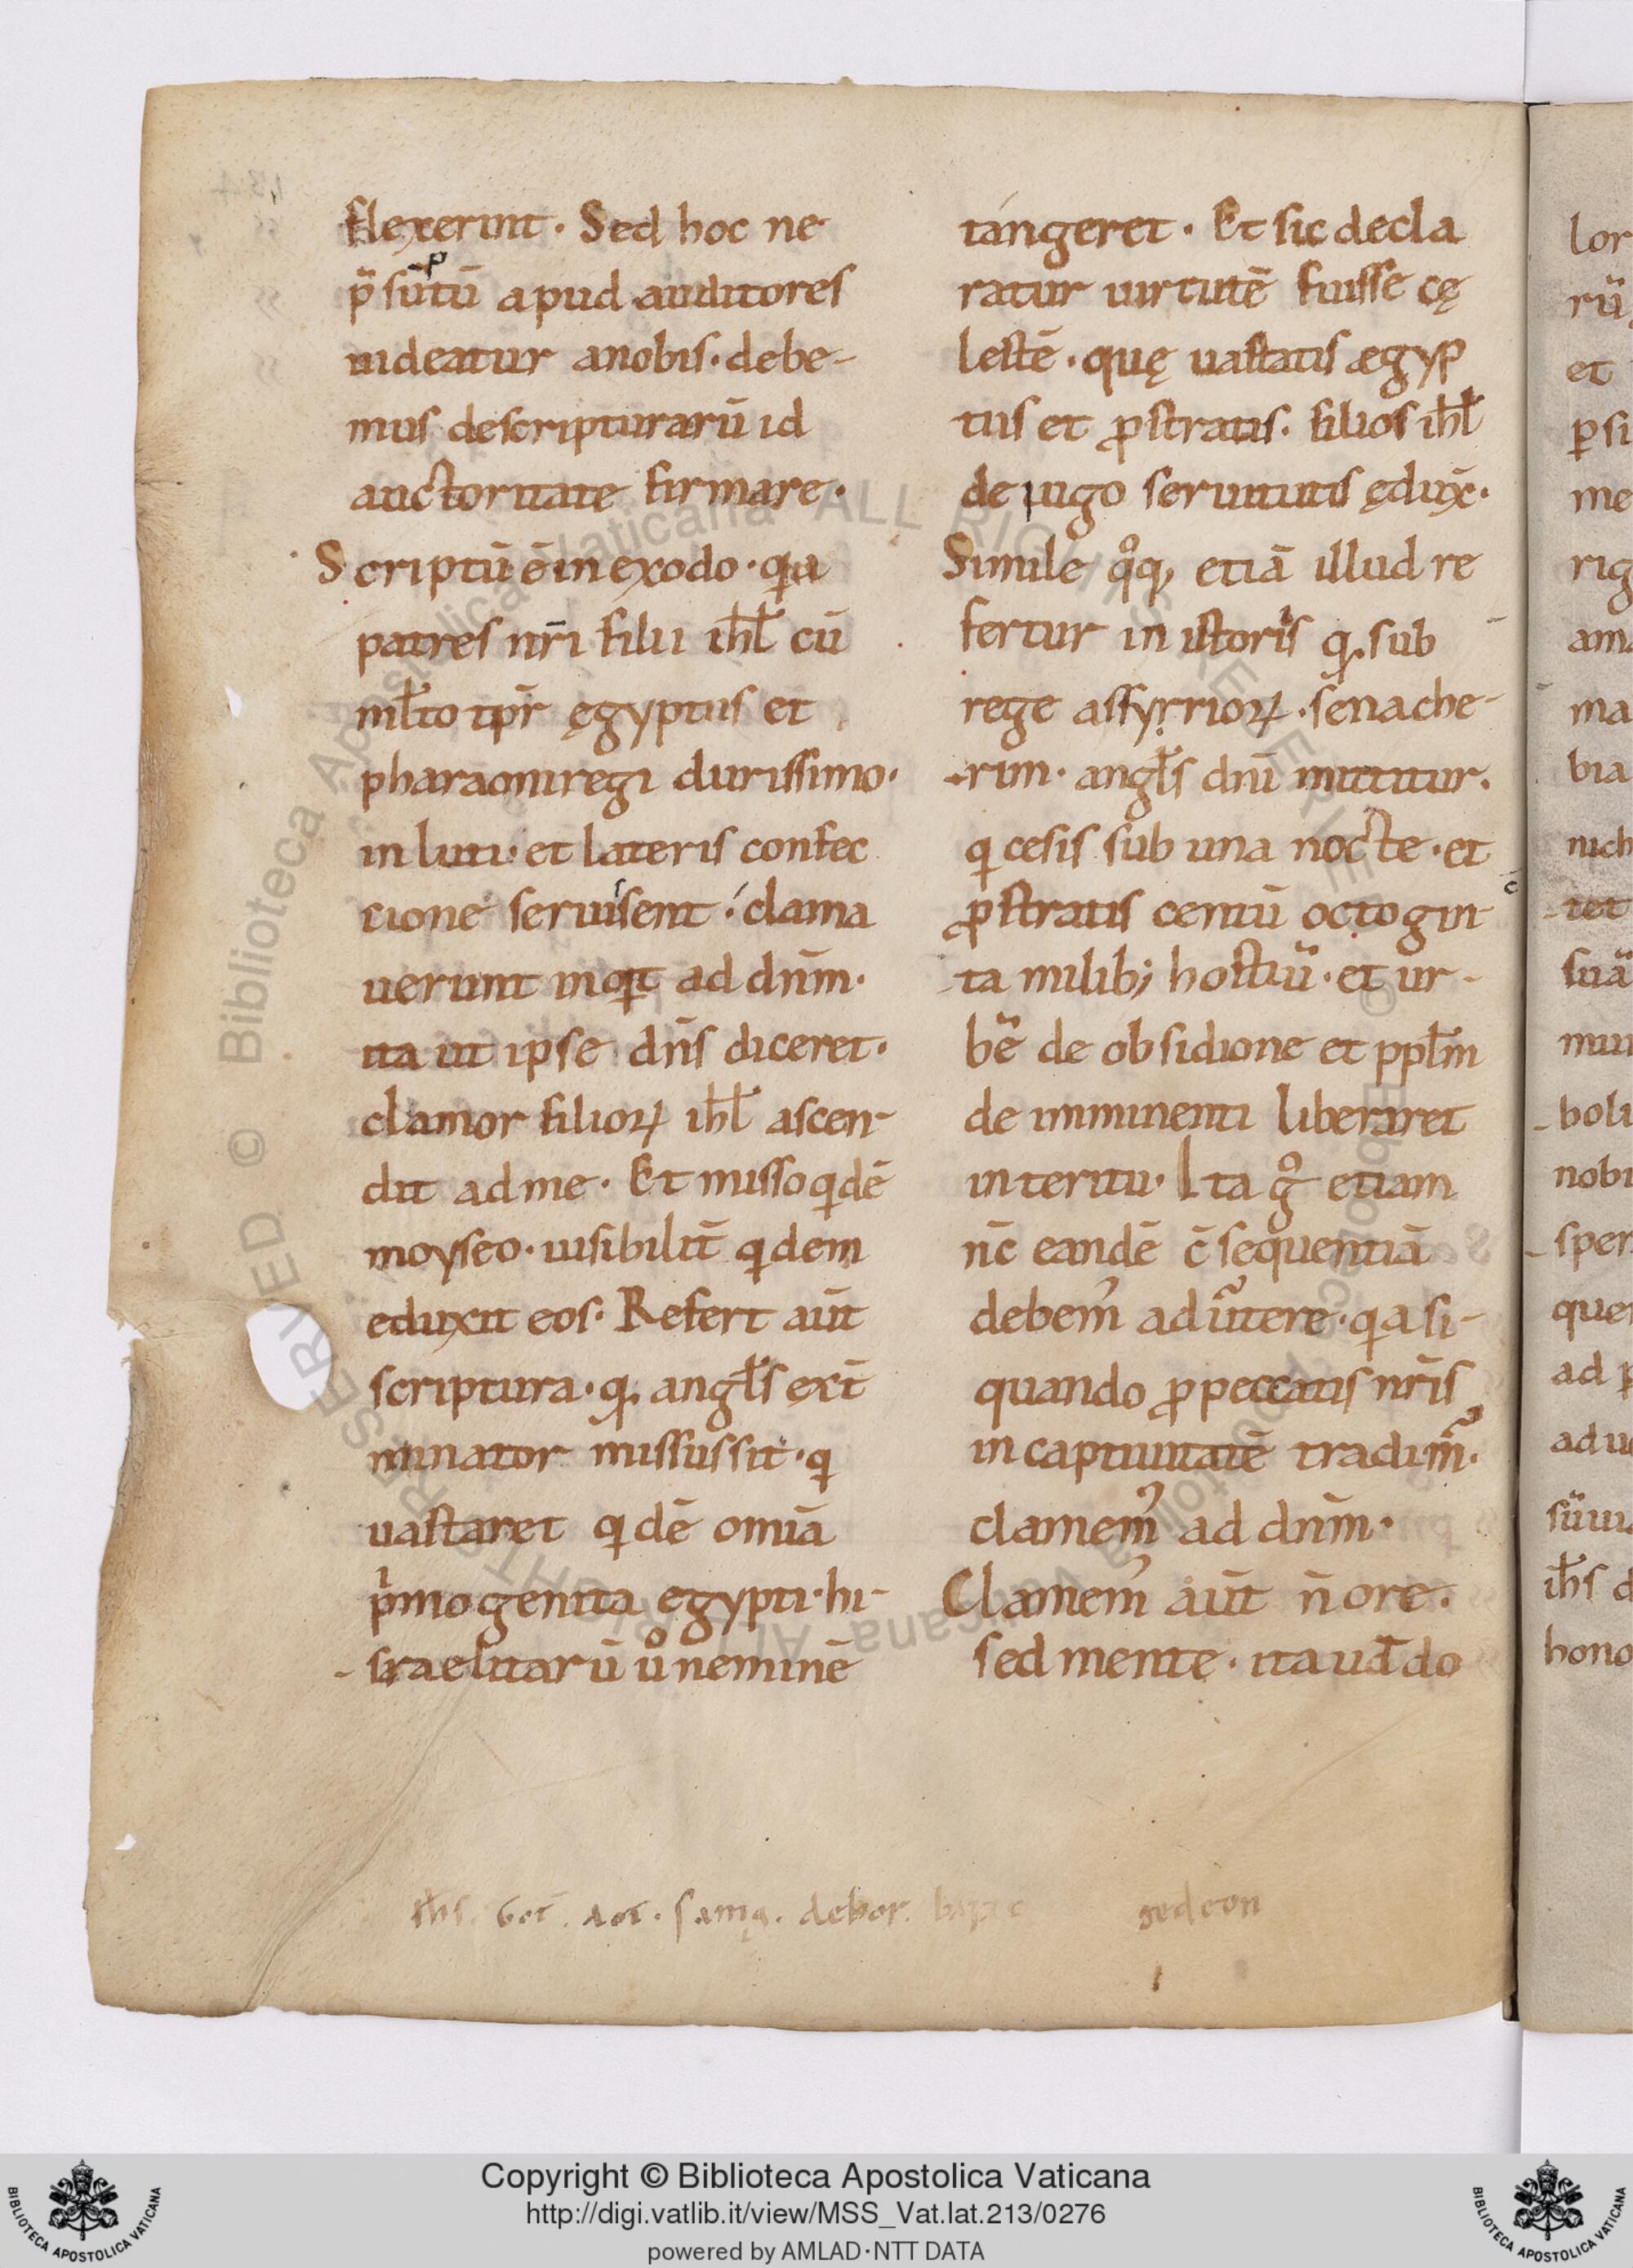 flexerunt. Sed hoc ne
p̄sūptū apud auditores
uideatur anobis. debe-
mus descripturarū id
auctoritate firmare.
Scriptū ē in exodo. q̄a
patres nr̄i filii ihl̄ cū
ml̄to tp̄r ęgyptiis et
pharaoni regi durissimo.
in luti. et lateris confec
tione seruissent. clama
uerunt inq̄t ad dn̄m.
ita ut ipse dn̄s diceret.
clamor filioꝝ ihl̄ ascen-
dit ad me. Et misso q̄dē
moyseo. uisibilit̄ q̄dem
eduxit eos. Refert aūt
scriptura. q. angl̄s ext̄
minator missus sit. q̄
uastaret q̄dē omīa
p̄mogenita egypti. hi-
sraelitarū ůneminē
tangeret. Et sic decla
ratur uirtutē fuisse cę
lestē. quę uastatis ægyp
tiis et ꝓstratis. filios ihl̄
de iugo seruitutis ędux̄.
Simile q̊q, etiā illud re
fertur in istoriis q. sub
rege assyrrioꝝ. senache-
rim. angl̄s dn̄i mittitur.
q̄ cesis sub una nocte. et
ꝓstratis centū octogin
ta milib; hostiū. et ur-
bē de obsidione et ppl̄m
de imminenti liberaret
interitu. Ita g̊ etiam
nc̄ eandē c̄sequentiā
debem᾽ aduūtere. q̄a si-
quando ꝓ peccatis nr̄is
in captiuitatē tradim̄᾽.
clamem᾽ ad dn̄m.
Clamem᾽ aūt n̄ ore.
sed mente. ita ud̄do
gedeon
lor
rū
et
ꝑsi
me
rig
ama
ma
bia
nich
tet
suā
mun
boli
nobi
sper
que
ad p
adu
sūui
ih̄s d
hono
Copyright © Biblioteca Apostolica Vaticana
http://digi.vatlib.it/view/MSS_Vat.lat.213/0276
powered by AMLAD·NTT DATA
BIBLIOTECA APOSTOLICA VATICANA
BIBLIOTECA APOSTOLICA VATICANA
© Biblioteca Apostolica Vaticana ALL RIGHTS RESERVED